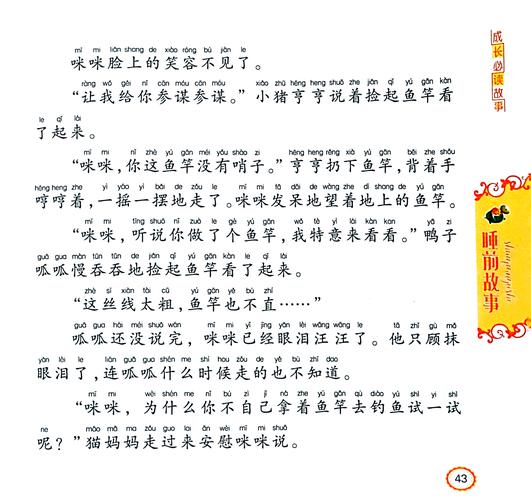 mī mi liǎn shang de xiào róng bú jiàn le
咪咪脸上的笑容不见了。
ràng wǒ gěi nǐ cān móu cān móu xiǎo zhū hēng heng shuō zhe jiǎn qǐ yú gān kàn
“让我给你参谋参谋。”小猪亨亨说着捡起鱼竿看
le qǐ lái
了起来。
mī mi nǐ zhè yú gān méi yǒu shào zi hēng heng rēng xià yú gān bēi zhe shǒu
“咪咪，你这鱼竿没有哨子。”亨亨扔下鱼竿，背着手
hēng heng zhe yì yáo yì bǎi de zǒu le mī mi fā dāi de wàng zhe dì shang de yú gān
哼哼着，一摇一摆地走了。咪咪发呆地望着地上的鱼竿。
mī mi tīng shuō nǐ zuò le gè yú gān wǒ tè yì lái kàn kan yā zi
“咪咪，听说你做了个鱼竿，我特意来看看。”鸭子
guā gua màn tūn tūn de jiǎn qǐ yú gān kàn le qǐ lái
呱呱慢吞吞地捡起鱼竿看了起来。
zhè sī xiàn tài cū yú gān yě bù zhí
“这丝线太粗，鱼竿也不直……”
guā gua hái méi shuō wán mī mi yǐ jīng yǎn lèi wāng wāng le tā zhǐ gù mǒ
呱呱还没说完，咪咪已经眼泪汪汪了。他只顾抹
yǎn lèi le lián guā gua shén me shí hou zǒu de yě bù zhī dao
眼泪了，连呱呱什么时候走的也不知道。
mī mi wèi shén me nǐ bú zì jǐ ná zhe yú gān qù diào yú shì yi shì
“咪咪，为什么你不自己拿着鱼竿去钓鱼试一试
ne māo mā ma zǒu guo lai ān wèi mī mi shuō
呢？”猫妈妈走过来安慰咪咪说。
成长必读故事
睡前故事
43